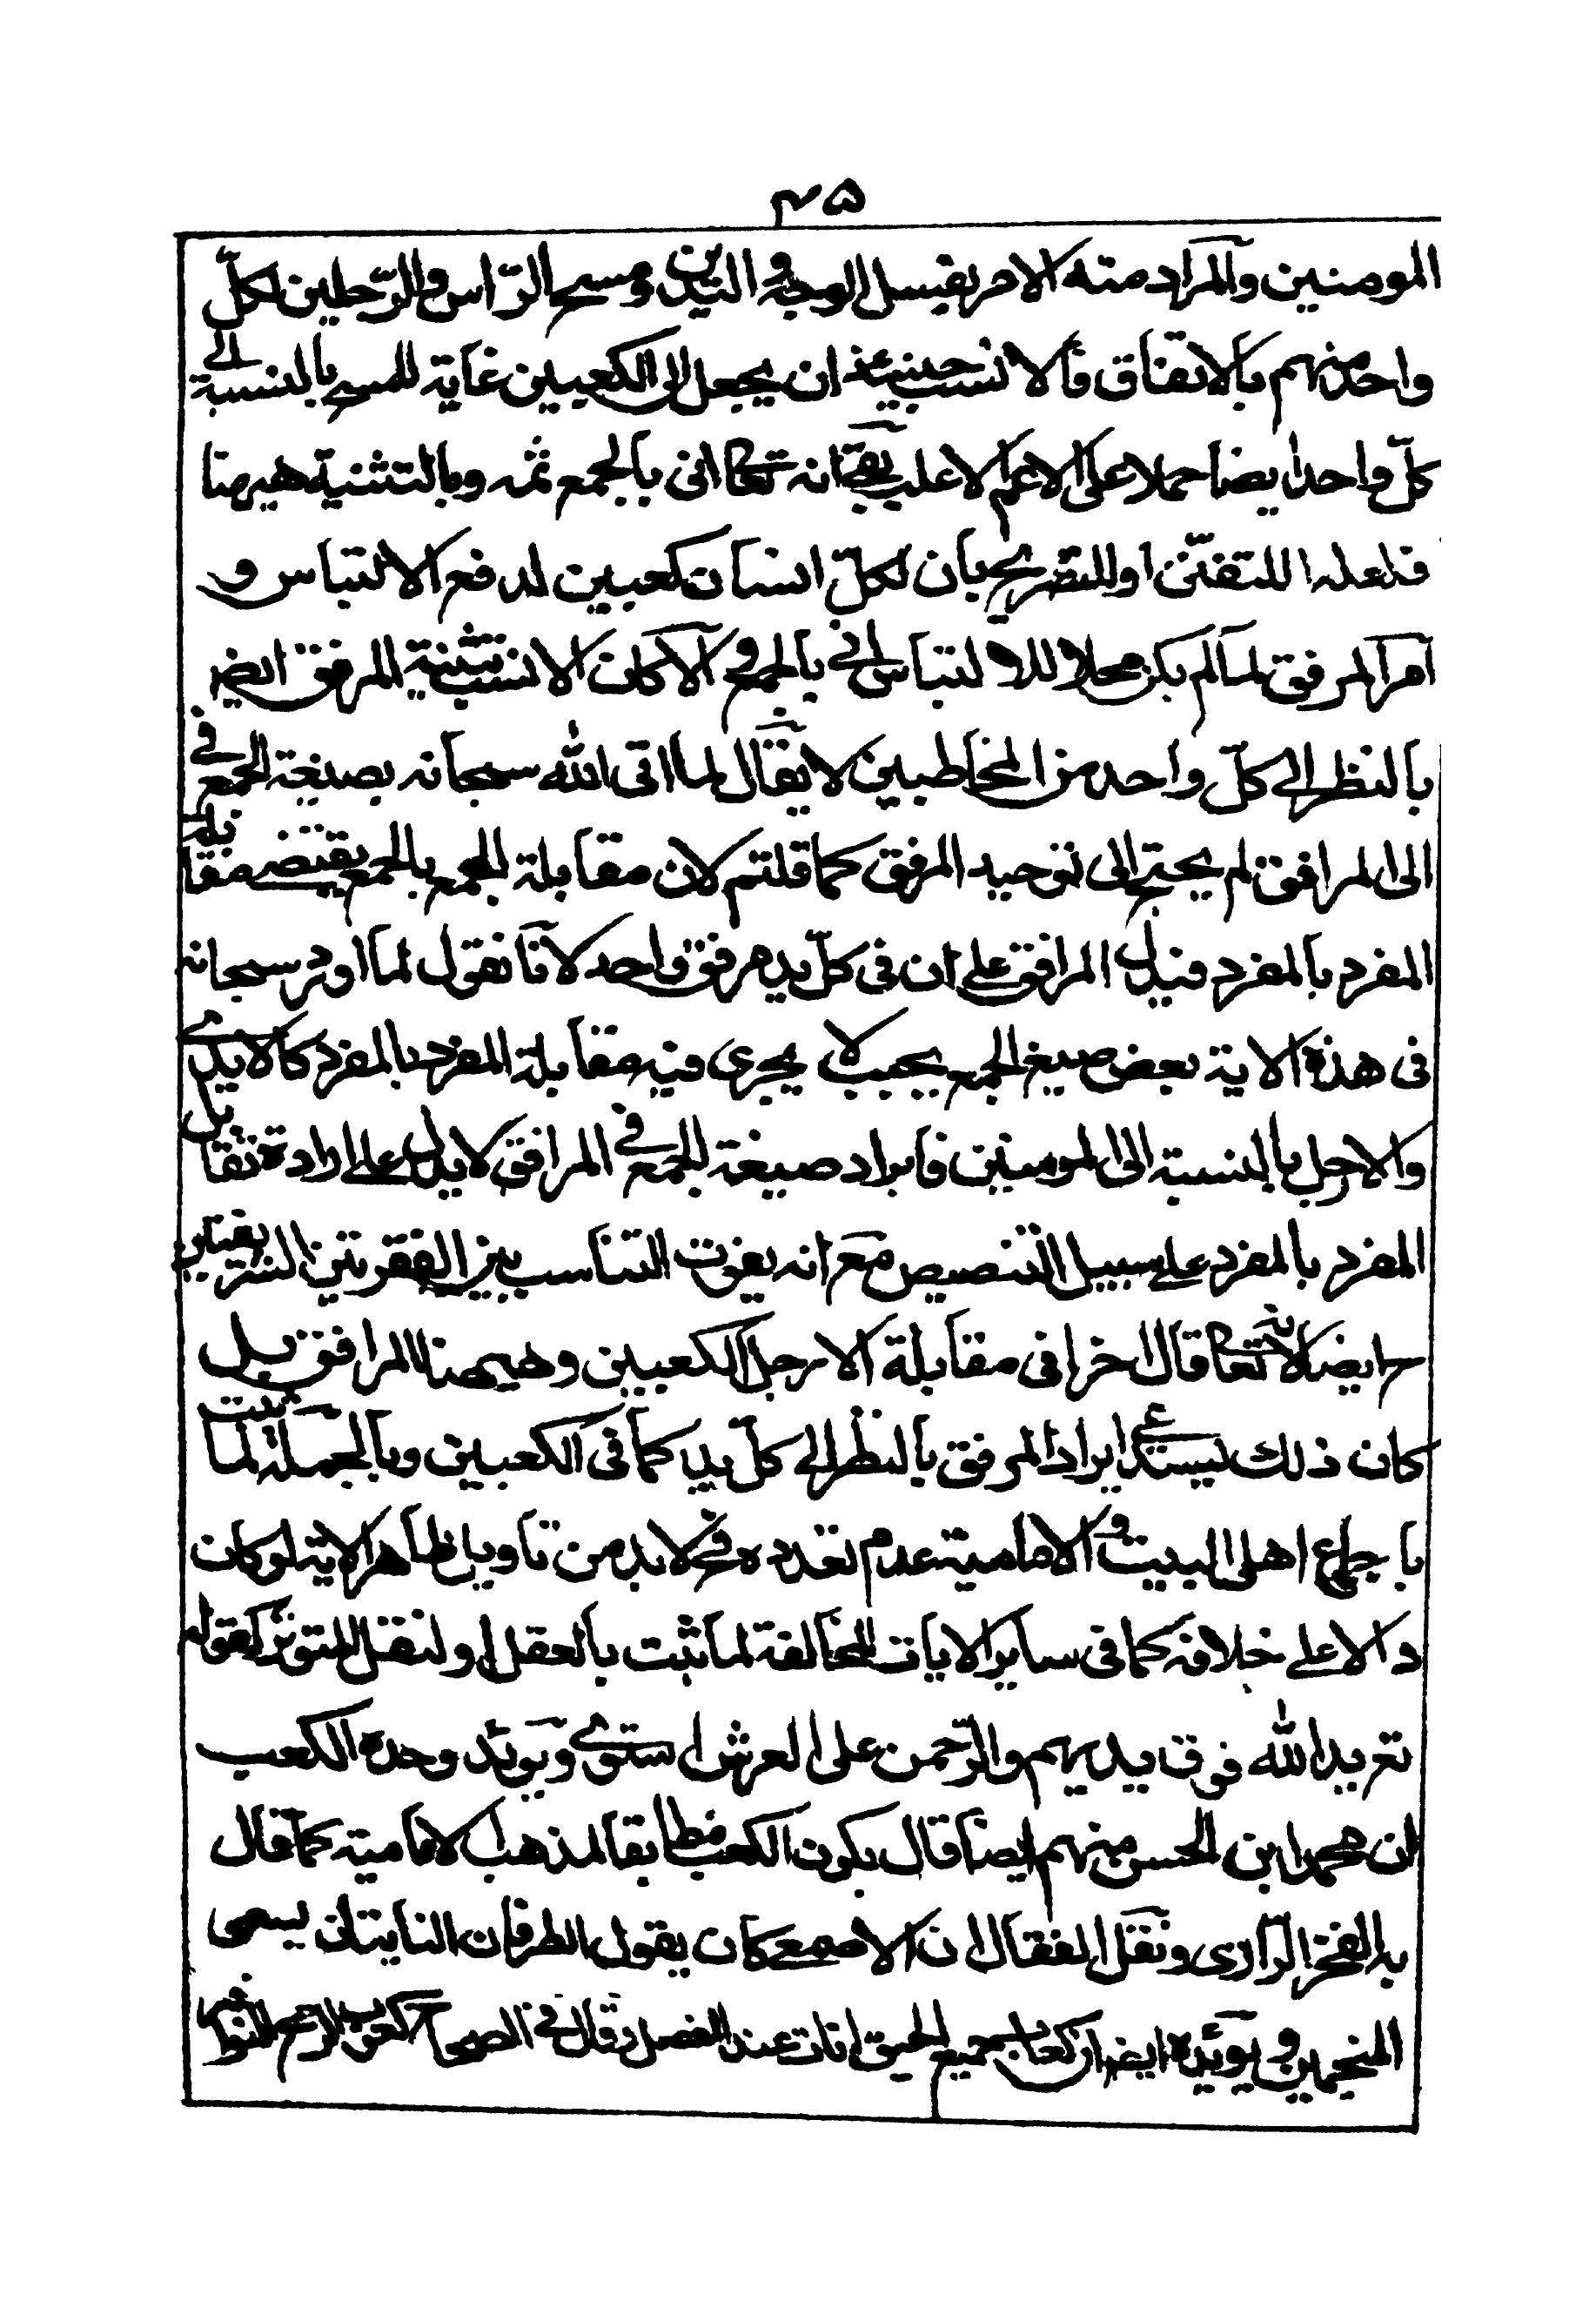 ٣٥
المومنين والمراد منه الامر بغسل الوجه واليدين ومسح الراس والرّجلين لكلّ
واحد منهم بالاتفاق فالانسب حينئذ ان يجعل الى الكعبين غاية للمسح بالنسبة الى
كلّ واحد ايضا حملا على الاعم الاغلب بقى انه تعالى اتى بالجمع ثمه وبالتثنية هيهنا
فلعله للتفنّن او للتصريح بان لكلّ انسان كعبين لدفع الالتباس و
امر المرفق لما لم يكن محلا للالتباس اتى بالجمع والا كان الانسب تثنية المرفق ايضا
بالنظر الى كلّ واحد من المخاطبين لا يقال لما اتى الله سبحانه بصيغة الجمع في
الى المرافق لم يحتج الى توحيد المرفق كما قلتم لان مقابلة الجمع بالجمع يقتضى مقابلة
المفرد بالمفرد فيدل المرافق على ان فى كلّ يد مرفق واحد لانا نقول لما اورد سبحانه
فى هذه الاية بعض صيغ الجمع بحيث لا يجرى فيه مقابلة المفرد بالمفرد كالايدى
والارجل بالنسبة الى المومنين فايراد صيغة الجمع في المرافق لا يدل على ارادة تقابل
المفرد بالمفرد على سبيل التنصيص مع انه يفوت التناسب بين الفقرتين الشريفتين
ح ايضا لانه تعالى قال اخرا فى مقابلة الارجل الكعبين وهيهنا المرافق بل
كان ذلك يستدعى ايراد المرفق بالنظر الى كلّ يد كما فى الكعبين وبالجملة لما ثبت
باجماع اهل البيت والامامية عدم تعدده فح لا بد من تاويل ظاهر الاية لو كان
دالا على خلافه كما فى ساير الايات المخالفة لما ثبت بالعقل او لنقل المتواتر كقوله
تع يد الله فوق يديهم والرّحمن على العرش استوى ويؤيد وحدة الكعب
ان محمد ابن الحسن منهم ايضا قال بكون الكعب مطابقا لمذهب الامامية كما قال
به الفخر الرّازى ونقل القفال ان الاصمعى كان يقول الطرفان الناتيان يسمى
المنجمين ويؤيده ايضا ان كعاب جميع الحيوانات عند المفصل وقال في الصحاح كعوب الرمح النواشز